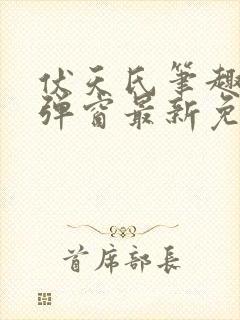 伏天氏笔趣
弹窗最新免
首席部长